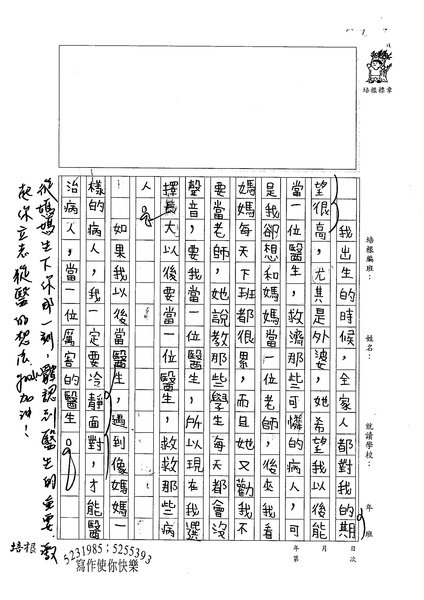 培根標章
培根編班：
姓名：
就讀學校：
年
班
我出生的時候，全家人都對我的期
望很高，尤其是外婆，她希望我以後能
當一位醫生，救濟那些可憐的病人，可
是我卻想和媽媽當一位老師，後來我看
媽媽每天下班都很累，而且她又勸我不
要當老師，她說教那些學生每天都會沒
聲音，要我當一位醫生，所以現在我選
擇長大以後要當一位醫生，救救那些病
人。
如果我以後當醫生，遇到像媽媽一
樣的病人，我一定要冷靜面對，才能醫
治病人，當一位厲害的醫生。
年 月 日
第 次
從媽媽生下你那一刻，體認到醫生的重要，激
起你立志從醫的想法，加油！
培根
5231985；5255393
寫作使你快樂